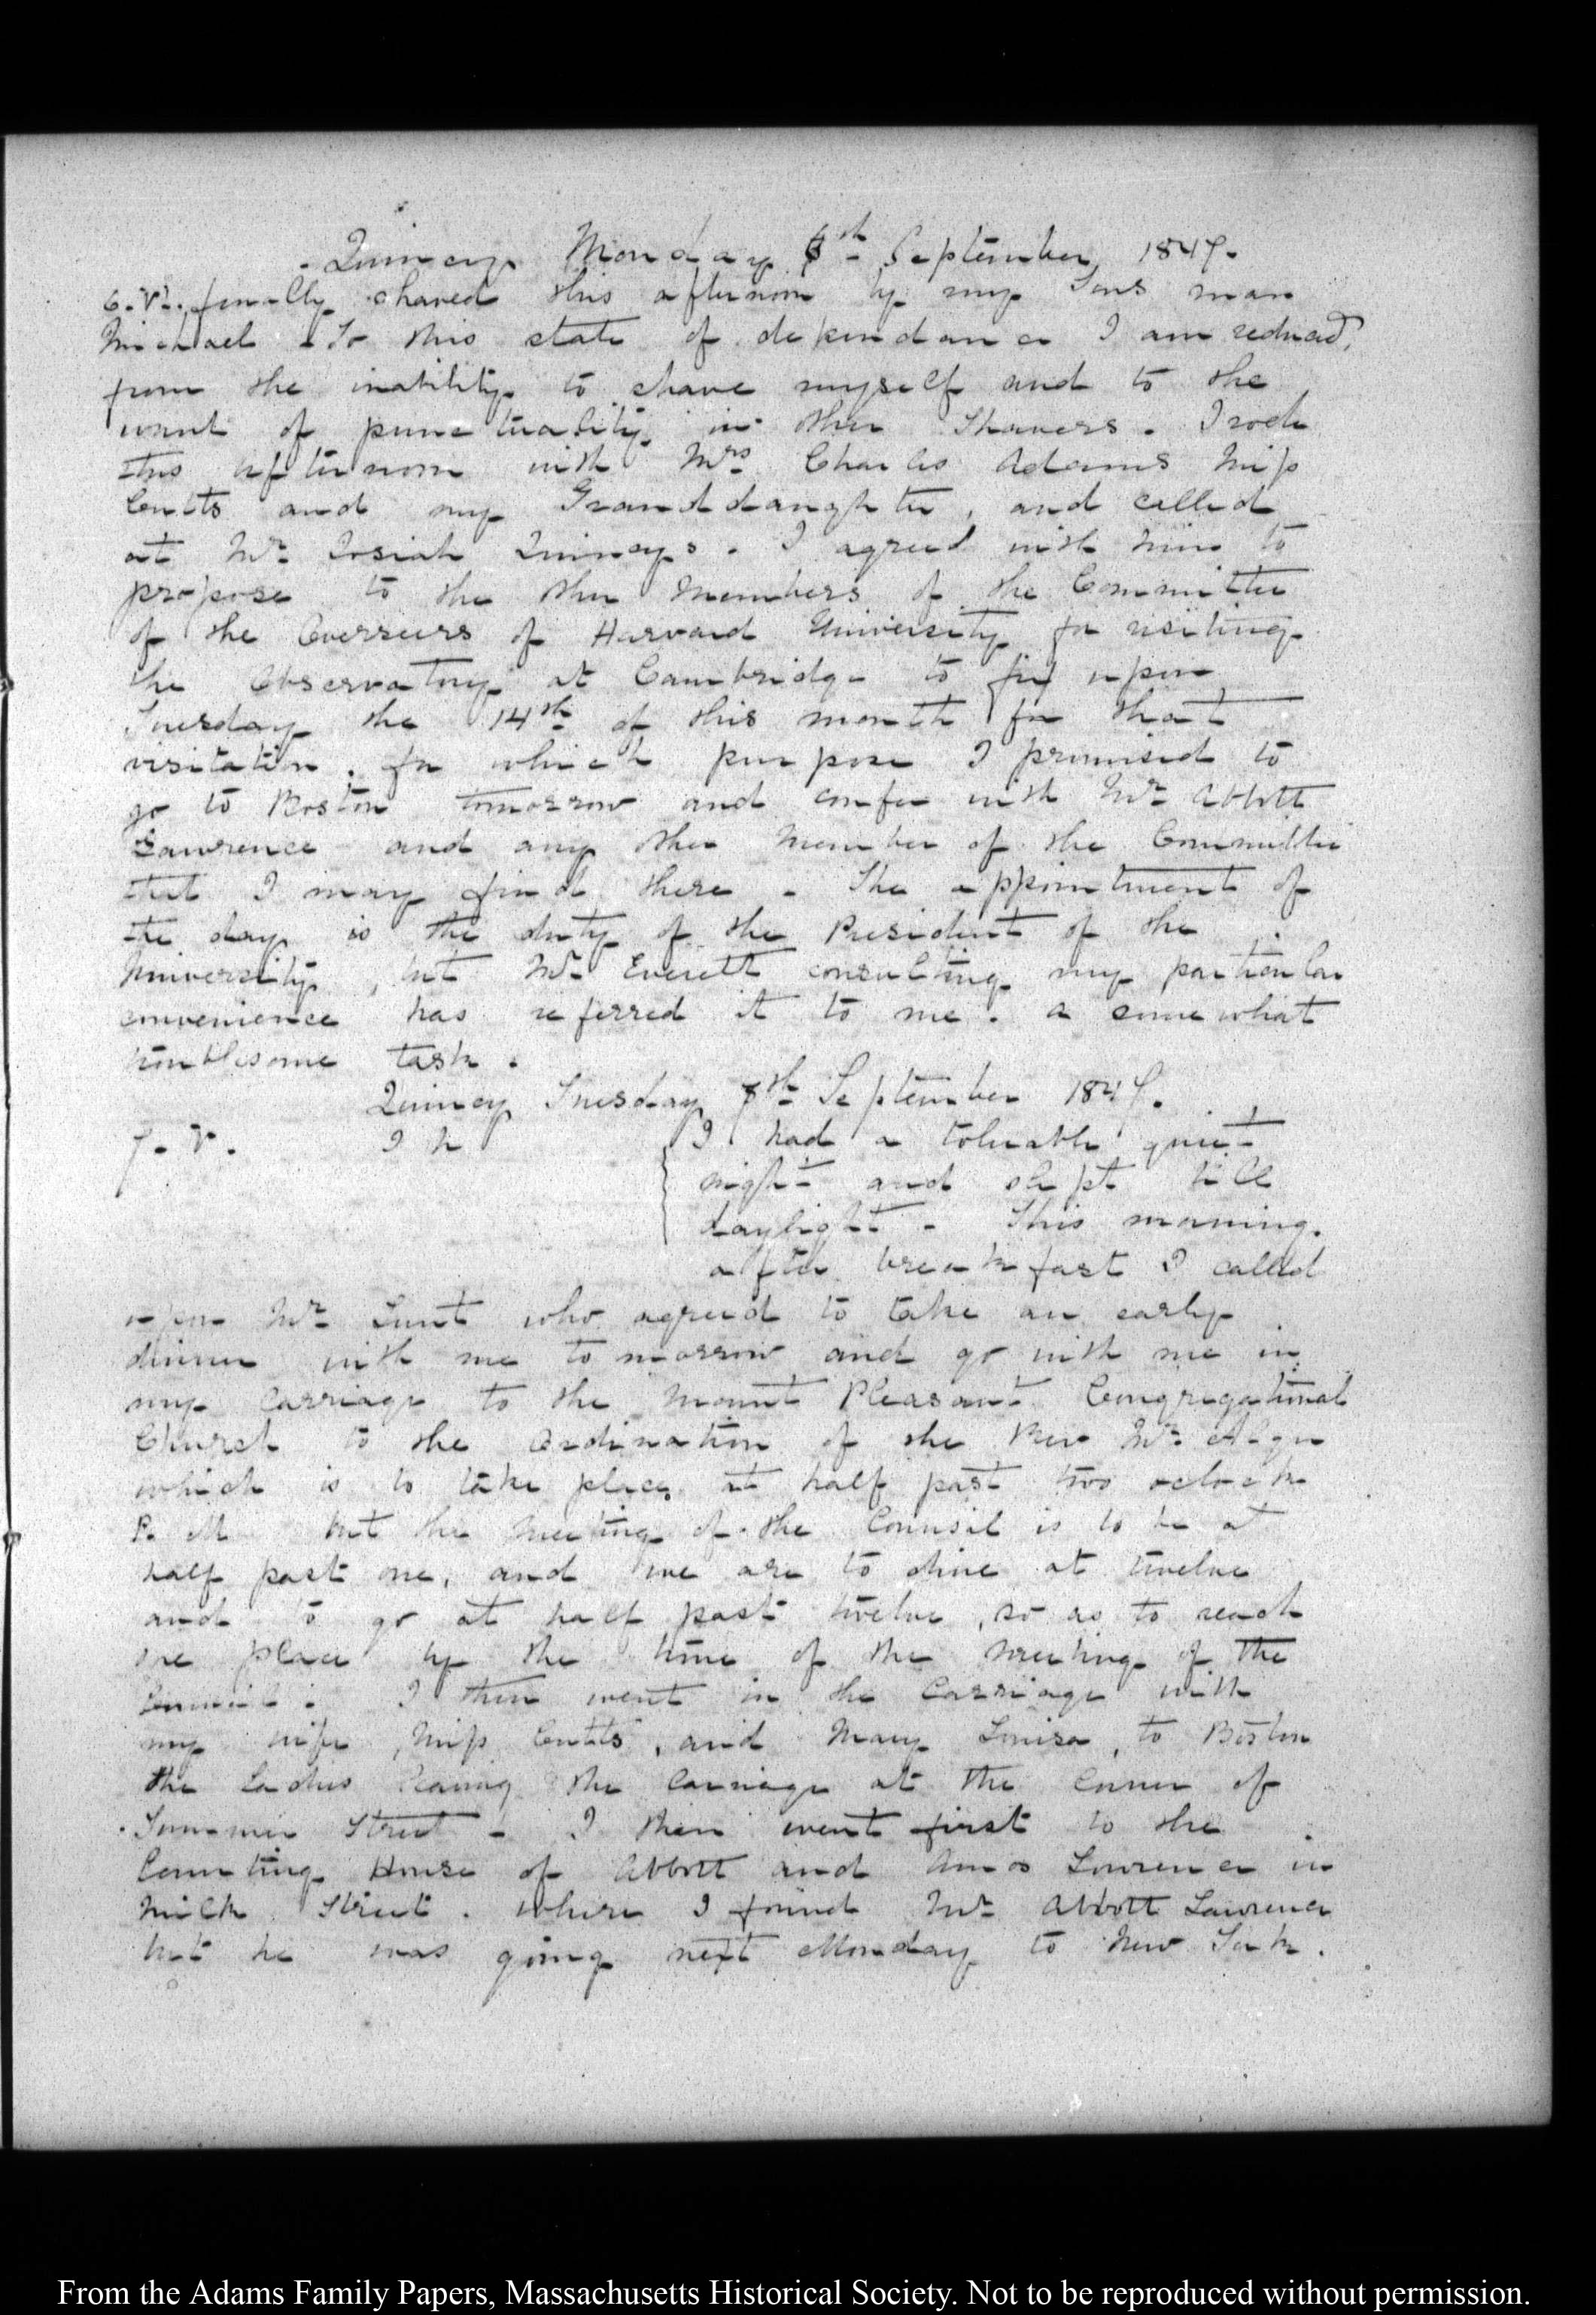 Quincy Monday 6th September 1847.
6. V. finally shaved this afternoon by my Sons man
Michael. To this state of dependance I am reduced,
from the inability to shave myself and to the
want of punctuality in other Shavers. I rode
this afternoon with Mrs Charles Adams Miss
Cutts and my Granddaughter, and called
at Mr Josiah Quincys. I agreed with him to
propose to the other Members of the Committee
of the Overseers of Harvard University for visiting
the Observatory at Cambridge to fix upon
Tuesday the 14th of this month for that
visitation. for which purpose I promised to
go to Boston tomorrow and confer with Mr Abbott
Lawrence and any other Member of the Committee
that I may find there. The appointment of
the day is the duty of the President of the
University, but Mr Everett consulting my particular
convenience has referred it to me. a somewhat
troublesome task.
Quincy Tuesday 7th September 1847.
7. V. I h I had a tolerable quiet
night and slept till
daylight. This morning.
after breakfast I called
upon Mr Lunt who agreed to take an early
dinner with me tomorrow and go with me in
my Carriage to the Mount Pleasant Congregational
Church to the Ordination of the Rev Mr Alger
which is to take place at half past two oclock
P. M but the meeting of the Counsil is to be at
half past one, and we are to dine at twelve
and to go at half past twelve, so as to reach
the place by the time of the meeting of the
Council. I then went in the Carriage with
my wife, Miss Cutts, and Mary Louisa, to Boston
the Ladies leaving the Carriage at the Corner of
Summer Street. I then went first to the
Counting House of Abbott and Amos Lawrence in
Milk Street. where I found Mr Abbott Lawrence
but he was going next Monday to New York.
From the Adams Family Papers, Massachusetts Historical Society. Not to be reproduced without permission.